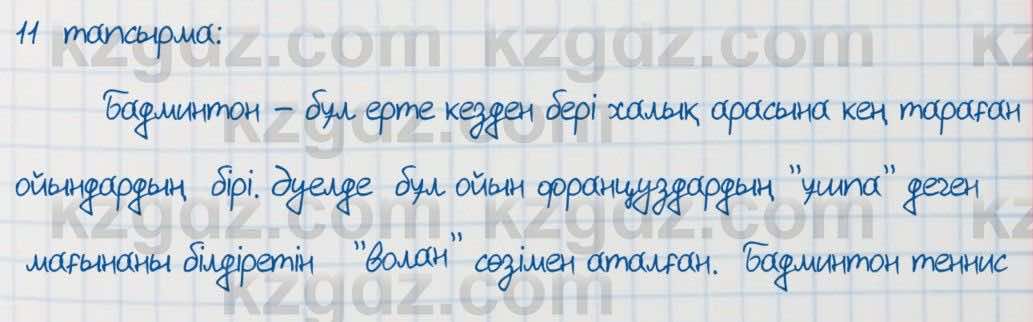 11 тапсырма:
Бадминтон – бұл ерте кезден бері халық арасына кең тараған
ойындардың бірі. Әуелде бұл ойын француздардың "ұшпа" деген
мағынаны білдіретін "волан" сөзімен аталған. Бадминтон теннис
kzgdz.com